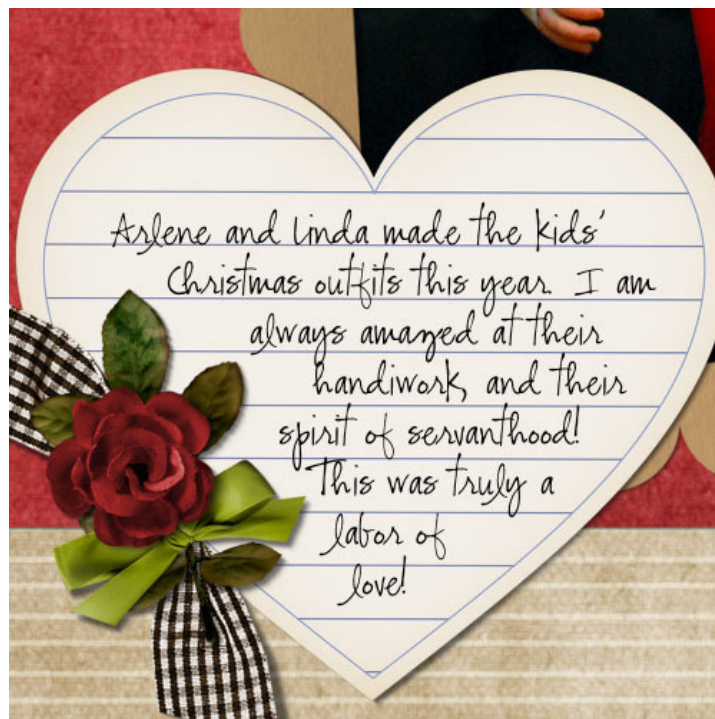 Arlene and Linda made the kids'
Christmas outfits this year. I am
always amazed at their
handiwork, and their
spirit of servanthood!
This was truly a
labor of
love!